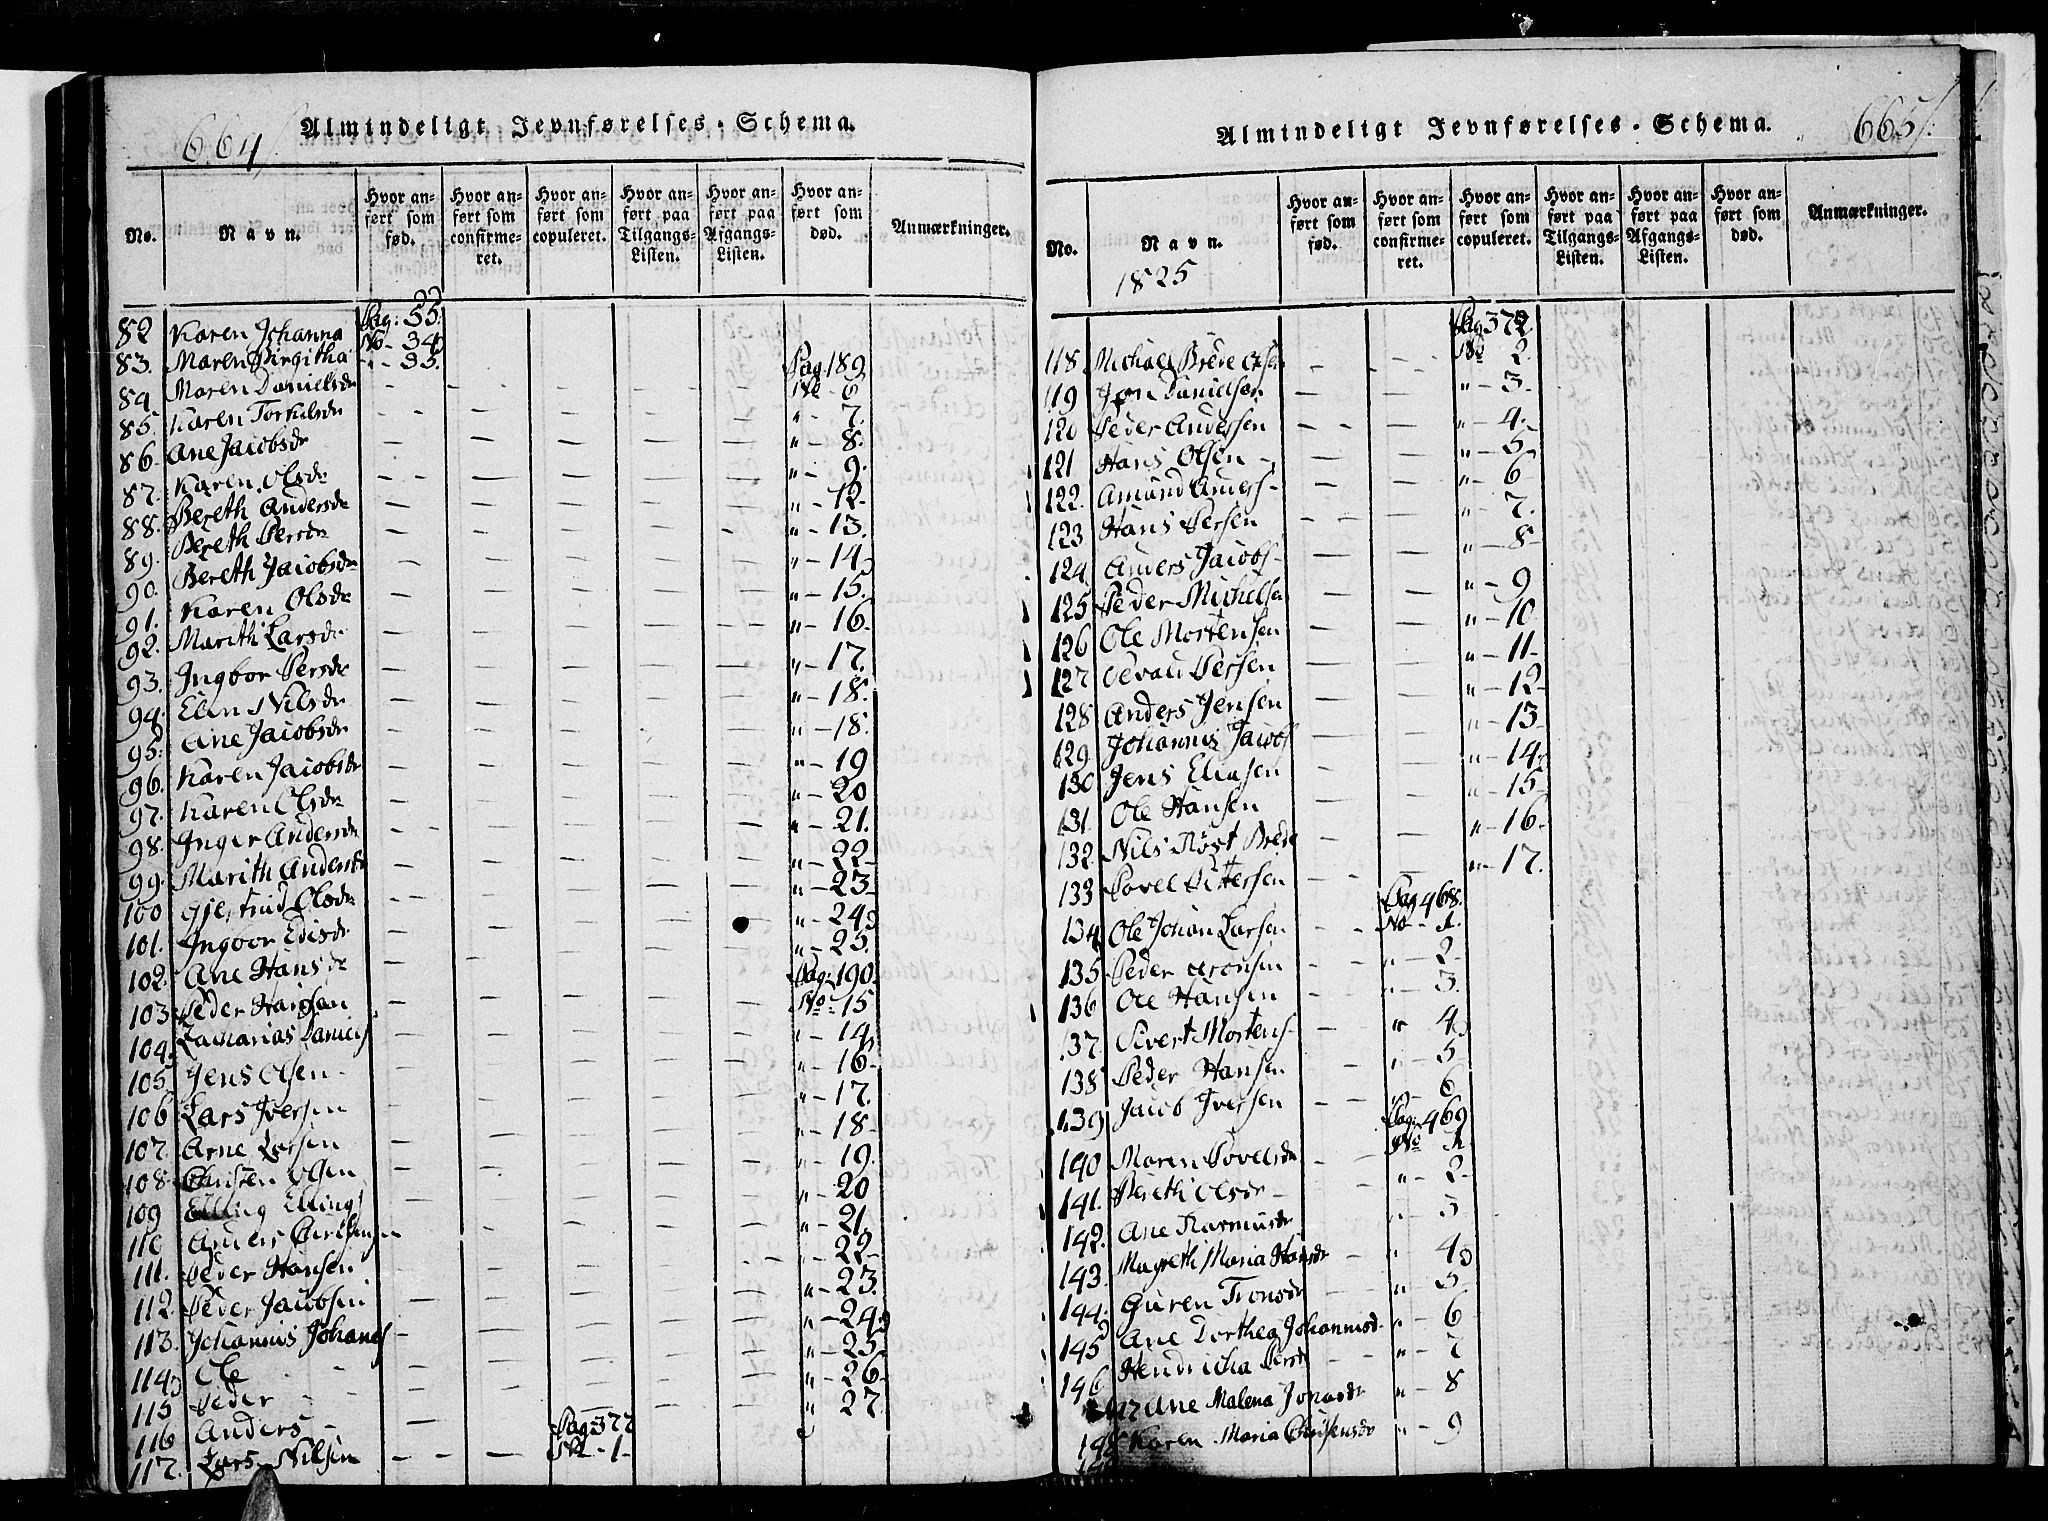 664/.
Almindeligt Jevnførelses-Schema.
No. Navn. Hvor anført som fød. Hvor anført som confirmeret. Hvor anført som copuleret. Hvor anført paa Tilgangs-Listen. Hvor anført paa Afgangs-Listen. Hvor anført som død. Anmærkninger.
Pag: 55.
82 Karen Johanna No - 34
83. Maren Birgitha " - 35.
Pag 189
84 Maren Danielsdr No - 6
85. Karen Torkilsdr " - 7.
86. Ane Jacobsdr " - 8.
87. Karen Olsdr " - 9.
88. Bereth Andersdr " - 12-
89. Bereth Persdr " - 13.
90. Bereth Jacobsdr " - 14
91. Karen Olsdr " - 15.
92. Marith Larsdr " - 16.
93. Ingbor Persdr " - 17.
94. Elen Nilsdr " - 18.
95. Ane Jacobsdr " - 18.
96. Karen Jacobsdr " - 19
97. Karen Olsdr " - 20
98. Inger Andersdr " - 21.
99. Marith Andersdr " - 22
100 Gjertrud Olsdr " - 23
101. Ingbor Edisdr " - 24
102. Ane Hansdr " - 25.
Pag: 190.
103 Peder Hansen No: 15
104. Zacharias Daniels " - 14
105. Jens Olsen - " - 16
106 Lars Iversen " - 17.
107. Arne Larsen " - 18
108. Christen Olsen " - 19.
109 Elling Ellings " - 20
110 Anders Christensen " - 21
111. Peder Hansen " - 22
112. Peder Jacobsen " - 23.
113. Johannis Johanes " - 24
114 Ole " - 25
115 Peder - " - 26
116 Anders - " 27
Pag 377
117. Lars Nilsen No - 1-
665/.
Almindeligt Jevnførelses-Schema.
No. Navn. Hvor anført som fød. Hvor anført som confirmeret. Hvor anført som copuleret. Hvor anført paa Tilgangs-Listen. Hvor anført paa Afgangs-Listen. Hvor anført som død. Anmærkninger.
1825
118 Michael No 2.
119 Jon Danielsen " - 3.
120 Peder Andersen " - 4.
121 Hans Olsen - " - 5.
122. Amund Anders- " - 6
123 Hans Persen " - 7.
124 Anders Jacobs- " - 8
125 Peder Michelsen " - 9
126 Ole Mortensen " - 10
127 Persen " - 11-
128 Anders Jensen " - 12-
129 Johannis Jacobs " - 13
130 Jens Eliasen " - 14.
131. Ole Hansen " - 15
132. Nils Røst Brede " - 16.
133 Povel Pittersen " - 17.
Pag 468.
134 Ole Johan Larsen No - 1.
135 Peder Aronsen " - 2
136 Ole Hansen " - 3.
137. Sivert Mortens- " 4
138 Peder Hansen " - 5
139 Jacob Iversen " - 6
Pag: 469
140 Maren Povelsdr No 1.
141. Bereth Olsdr - " - 2
142. Ane Rasmusdr " - 3
143. Magreth Maria Hansdr " - 4
144. Guren Tronsdr " - 5
145 Ane Dorthea Johannisdr " - 6
146 Hendricha Persdr " - 7
147 Ane Malena Jonasdr " - 8
148 Karen Maria Christensdr " - 9